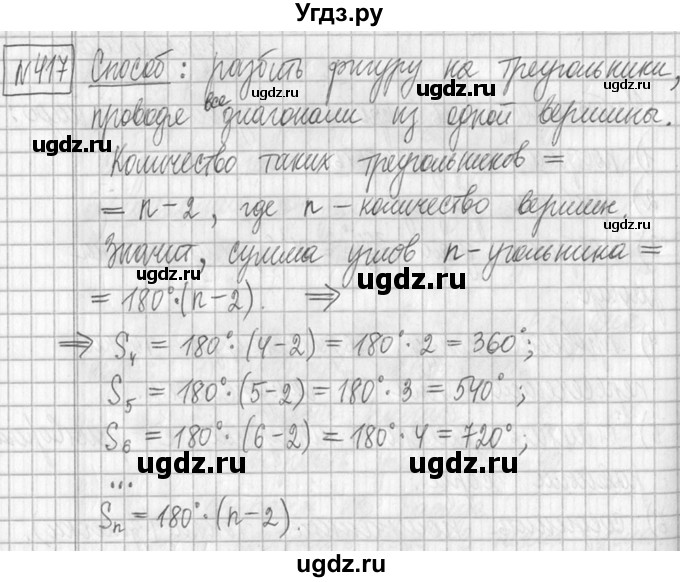 Угдз.ру
№417 Способ: разбить фигуру на треугольники,
ugdz.ru ugdz.ru
проведя все диагонали из одной вершины.
ugdz.ru ugdz.ru
Количество таких треугольников =
= n-2, где n - количество вершин.
Значит, сумма углов n-угольника =
ugdz.ru ugdz.ru
= 180°·(n-2). ⇒
⇒ S₄ = 180°·(4-2) = 180°·2 = 360°;
ugdz.ru ugdz.ru
S₅ = 180°·(5-2) = 180°·3 = 540°;
S₆ = 180°·(6-2) = 180°·4 = 720°;
ugdz.ru ugdz.ru
...
Sₙ = 180°·(n-2).
ugdz.ru